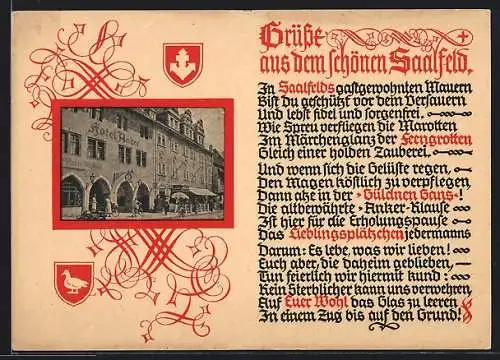 Grüße
aus dem schönen Saalfeld.
In Saalfelds gastgewohnten Mauern
Bist du geschützt vor dem Versauern
Und lebst fidel und sorgenfrei.
Wie Spreu verfliegen die Marotten
Im Märchenglanz der Feengrotten
Gleich einer holden Zauberei.
Und wenn sich die Gelüste regen,
Den Magen köstlich zu verpflegen,
Dann atz in der "Güldnen Gans"!
Die altbewährte "Anker-Klause"
Ist hier für die Erholungspause
Das Lieblingsplätzchen jedermanns
Darum: Es lebe, was wir lieben!
Euch aber, die daheim geblieben,
Tun feierlich wir hiermit kund:
Kein Sterblicher kann uns verwehren,
Auf Euer Wohl das Glas zu leeren
In einem Zug bis auf den Grund!
Hotel Anker